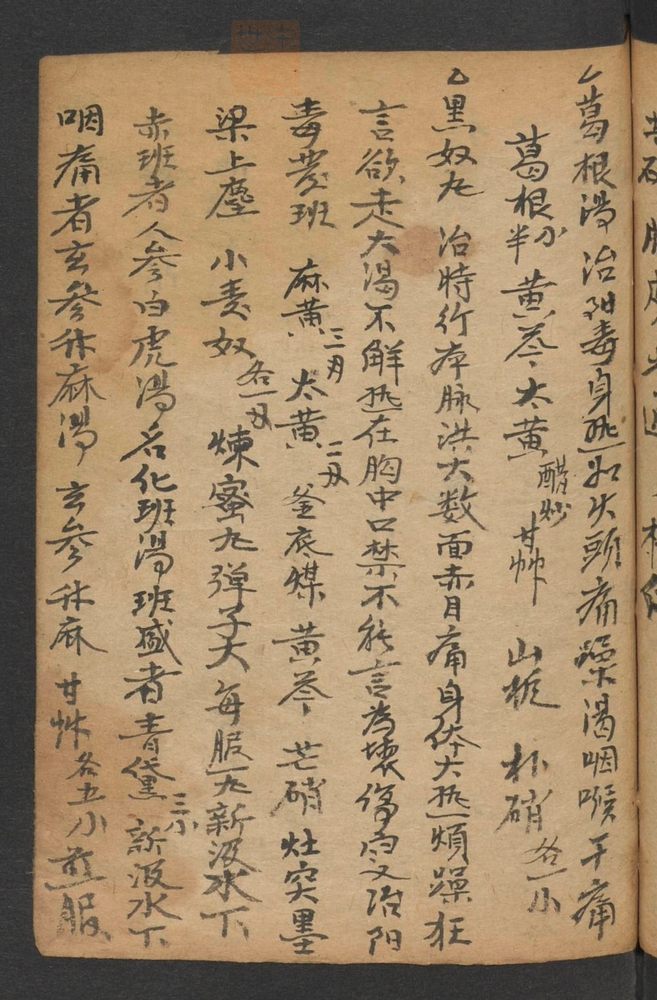 葛根湯治陽毒身热如火頭痛燥渴咽喉干痛
葛根半小 黄芩 大黄醋炒 甘艸 山栀 朴硝各一小
黑奴丸 治時行 脉洪大数面赤目痛身体大热煩躁狂
言欲走大渴不解热在胸中口禁不能言為壞傷寒又治陽
毒發班 麻黄三刄 大黄二刄 釜底煤 黄芩 芒硝 灶突墨
梁上塵 小麦奴各一刄 煉蜜丸弹子大每服一丸新汲水下
赤班者人參白虎湯名化班湯班盛者青黛三小新汲水下
咽痛者玄參升麻湯 玄參升麻 甘艸各五小煎服